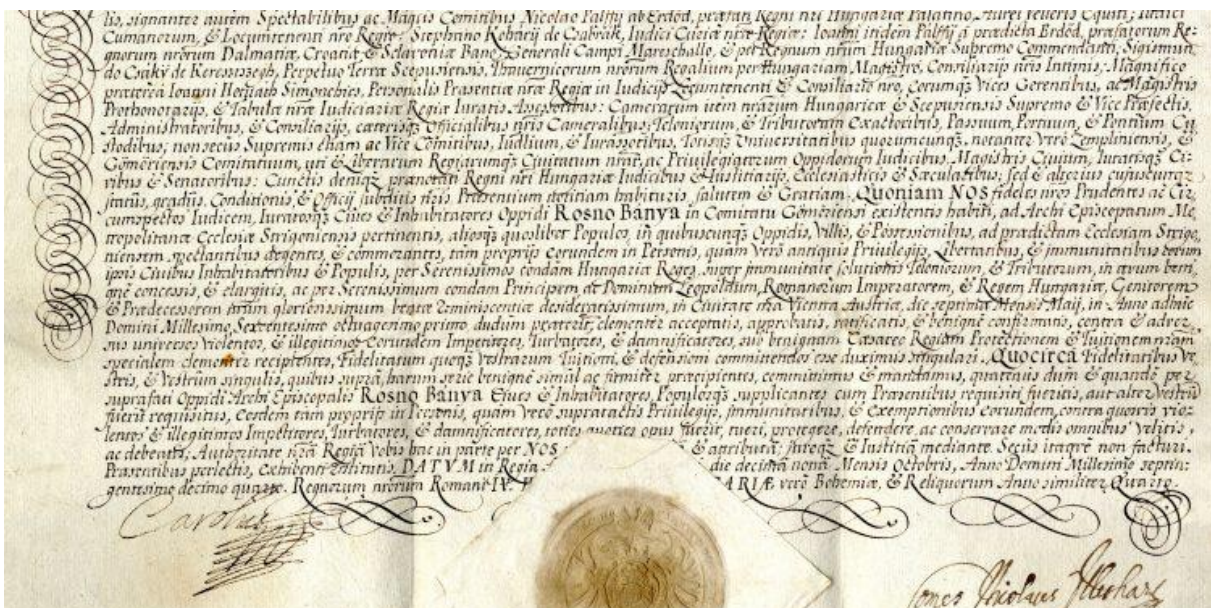 lis, signanter autem Spectabilibus ac Magcis Comitibus Nicolao Palffy ab Erdőd, præfati Regni nri Hungariæ Palatino, Aurei Velleris Equiti, Iudici
Cumanorum, & Locumtenenti nro Regio: Stephano Koháry de Csábrák, Iudici Curiæ nræ Regiæ: Ioanni itidem Palffy á prædicta Erdőd, præfatorum Re-
gnorum nrórum Dalmatiæ, Croatiæ & Sclavoniæ Bano, Generali Campi Mareschallo, & per Regnum nrum Hungariæ Supremo Commendanti, Sigismun-
do Csáky de Keresszegh, Perpetuo Terræ Scepusiensis, Thavernicorum nrórum Regalium per Hungariam Magistro, Consiliarijs nris Intimis; Magnifico
præterea Ioanni Horváth Simonchics, Personalis Præsentiæ nræ Regiæ in Iudicijs Locumtenenti & Consiliario nro, eorumq; Vices Gerentibus, ac Magistris
Prothonotarijs, & Tabulæ nræ Iudiciariæ Regiæ Iuratis Assessoribus: Camerarum item nrarum Hungaricæ & Scepusiensis Supremo & Vice Præfectis,
Administratoribus, & Consiliarijs, cæterisq; Officialibus nris Cameralibus; Teloniorum, & Tributorum Exactoribus, Passuum, Portuum, & Pontium Cu
stodibus; non secus Supremis etiam ac Vice Comitibus, Iudlium, & Iurassoribus, Totisq; Universitatibus quorumcunq;, notanter vero Zempliniensis, &
Gőmőriensis Comitatuum, uti & Liberarum Regiarumq; Civitatum nrar, ac Privilegiatorum Oppidorum Iudicibus, Magistris Civium, Iuratisq; Ci-
vibus & Senatoribus: Cunctis deniq; prænotati Regni nri Hungariæ Iudicibus & Iustitiarijs, Ecclesiasticis & Sæcularibus; sed & alterius cujuscunq;
status, gradus, Conditionis, & Officij subditis nris Præsentium notitiam habituris, salutem & Gratiam. Quoniam NOS fideles nros Prudentes ac Cir
cumspectos Iudicem, Iuratosq; Cives & Inhabitatores Oppidi Rosno Bánya in Comitatu Gőmőriensi existentis habiti, ad Archi Episcopatum Me
tropolitanæ Ecclesiæ Strigoniensis pertinentis, aliosq; quoslibet Populos, in quibuscunq; Oppidis, Villis, & Possessionibus, ad prædictam Ecclesiam Strigo
niensem spectantibus degentes, & commorantes, tam proprijs eorundem in Personis, quàm verò antiquis Privilegijs, Libertatibus, & immunitatibus eorum
ipsis Civibus Inhabitatoribus & Populis, per Serenissimos condam Hungariæ Reges, super immunitate solutionis Teloniorum, & Tributorum, in ævum beni
gnè concessis, & elargitis, ac per Serenissimum condam Principem ac Dominum Leopoldum, Romanorum Imperatorem, & Regem Hungariæ, Genitorem
& Prædecessorem nrum gloriosissimum beatæ reminiscentiæ desideratissimum, in Civitate nra Vienna Austriæ, die septima Mensis Maij, in Anno adhuc
Domini Millesimo, Sexcentesimo octuagesimo primo dudum præterito, clementer acceptatis, approbatis, ratificatis, & benignè confirmatis, contra & adver
sus universos violentos, & illegitimos eorundem Impetitores, Turbatores, & damnificatores, sub benignam Cæsareo Regiam Protectionem & Tuitionem nram
specialem clementer recipientes, Fidelitatum quoq; Vestrarum Tuitioni, & defensioni committendos esse duximus singulari. Quocirca Fidelitatibus Ve
stris, & Vestrum singulis, quibus supra, harum serie benignè simul ac firmiter præcipientes, committimus & mandamus, quatenus dum & quando per
suprafati Oppidi Archi Episcopalis Rosno Bánya Cives & Inhabitatores, Populosq; supplicantes cum Præsentibus requisiti fueritis, aut alter Vestrũ
fuerit requisitus, Eosdem tàm proprijs in Personis, quàm verò supratactis Privilegijs, Immunitatibus, & Exemptionibus eorundem, contra quosvis vio
lentos & illegitimos Impetitores, Turbatores, & damnificatores, toties quoties opus fuerit, tueri, protegere, defendere, ac conservare modis omnibus velitis,
ac debeatis; Authoritate nra Regia Vobis hac in parte per NOS & attributa; Iureq; & Iustitia mediante. Secùs itaq; non facturi.
Præsentibus perlectis, Exhibenti restitutis. DATUM in Regia die decima nona Mensis Octobris, Anno Domini Millesimo septin:
gentesimo decimo quarto. Regnorum nrórum Romani IV. ARIÆ verò Bohemiæ, & Reliquorum Anno similiter Quarto.
Carolus
Comes Nicolaus Illeshazy